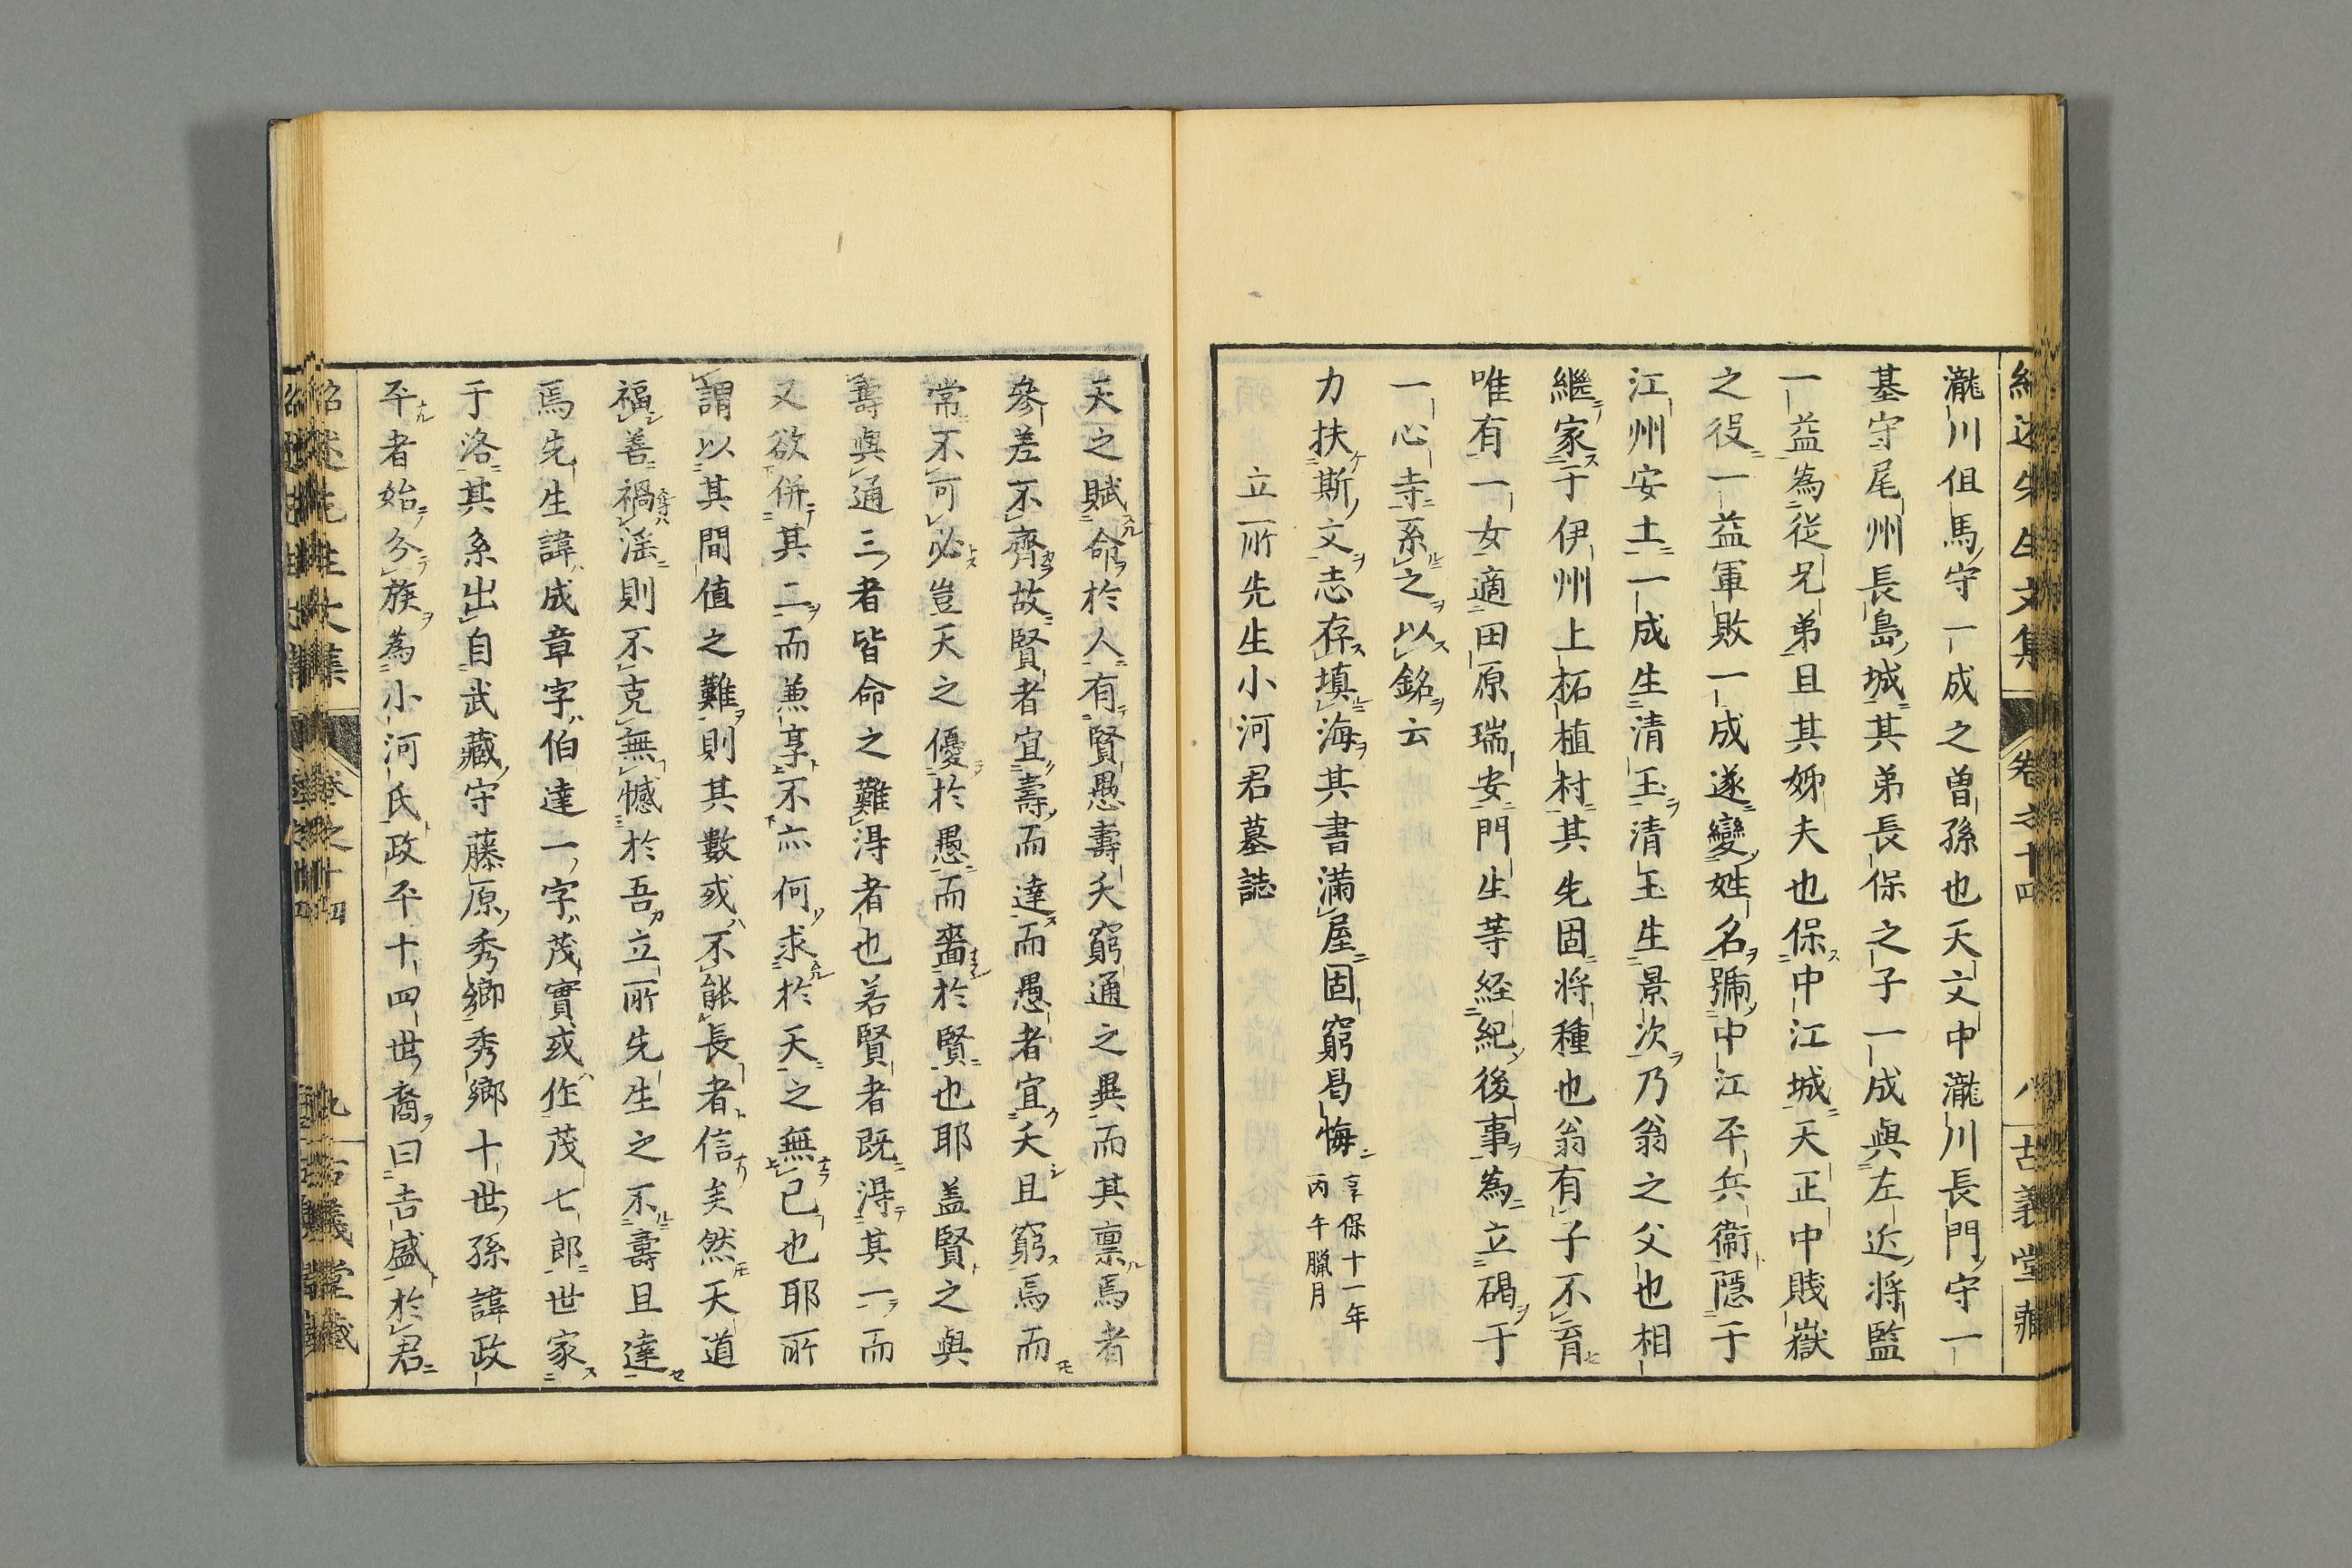 紹述先生文集　卷之十四　八　古義堂藏
瀧川但馬守一成之曽孫也天文中瀧川長門守一
基守尾州長島城其弟長保之子一成與左近将監
一益為從兄弟且其姊夫也保中江城天正中賎嶽
之役一益軍敗一成遂變姓名號中江平兵衞隱于
江州安土一成生清玉清玉生景次乃翁之父也相
繼家于伊州上柘植村其先固将種也翁有子不育
唯有一女適田原瑞安門生等経紀後事為立碣于
一心寺系之以銘云
力扶斯文志存填海其書滿屋固窮曷悔享保十一年丙午臘月
立所先生小河君墓誌
天之賦命於人有賢愚壽夭窮通之異而其禀焉者
參差不齊故賢者宜壽而達而愚者宜夭且窮焉而
常不可必豈天之優於愚而嗇於賢也耶盖賢之與
壽與通三者皆命之難得者也若賢者既得其一而
又欲併其二而兼享不亦何求於天之無已也耶所
謂以其間値之難則其數或不能長者信矣然天道
福善禍淫則不克無憾於吾立所先生之不壽且達
焉先生諱成章字伯達一字茂實或作茂七郎世家
于洛其系出自武藏守藤原秀郷秀郷十世孫諱政
平者始分族為小河氏政平十四世裔曰吉盛於君
紹述先生文集　卷之十四　九　古義堂藏